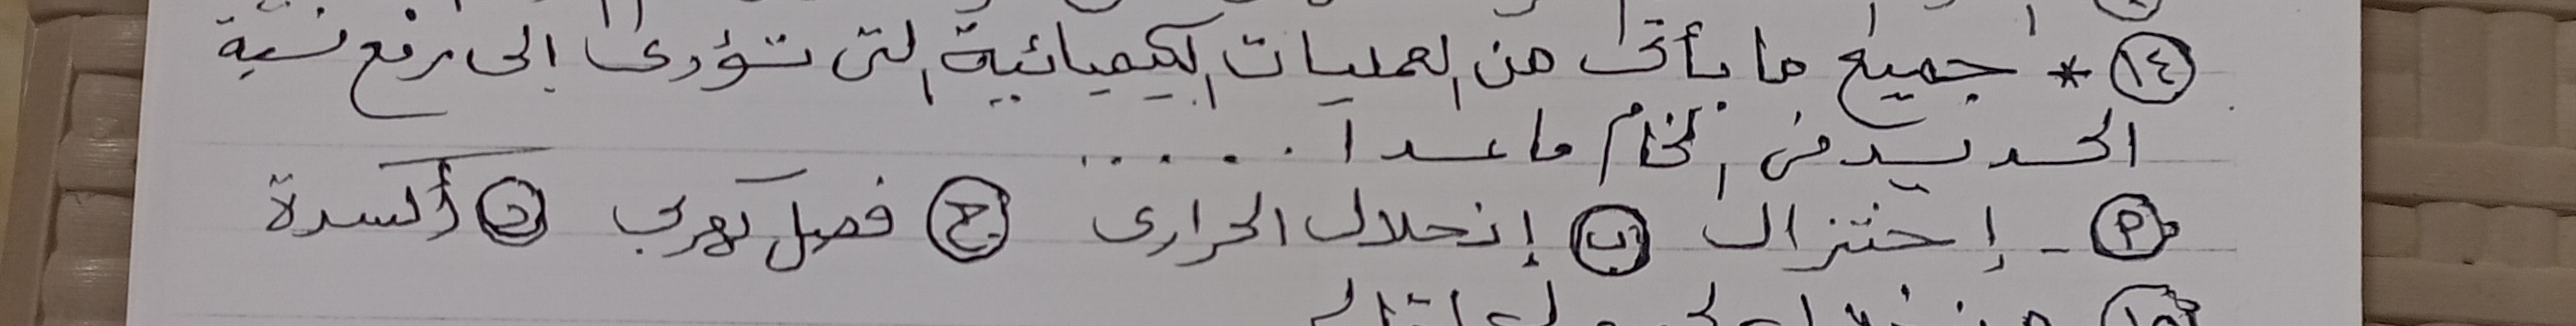 ١٤ * جميع ما يأتى من العمليات الكيميائية التى تؤدى إلى رفع نسبة
الحديد فى الخام ماعدا .....
أ - إختزال ب إنحلال الحرارى ج فصل كهربى د أكسدة